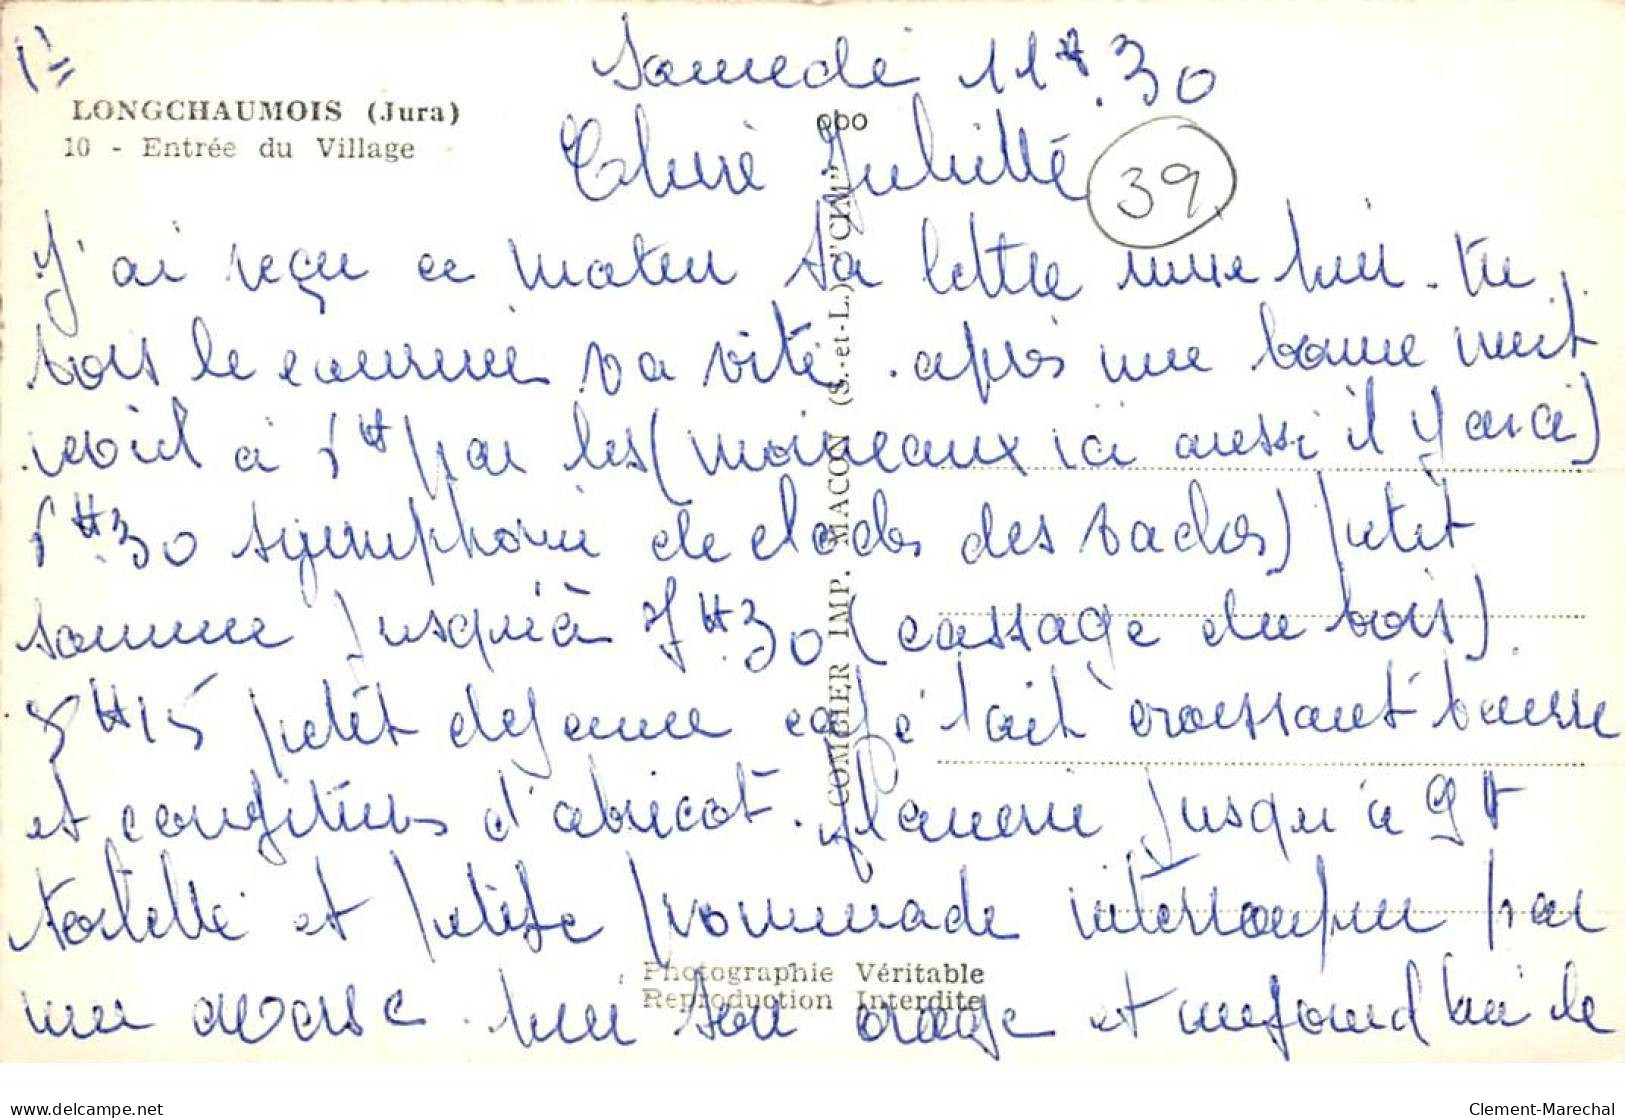 1
LONGCHAUMOIS (Jura)
10 - Entrée du Village
Samedi 11H.30
Chère Juliette
39
J'ai reçu ce matin ta lettre mise hier. tu
vois le courrier va vite. après une bonne nuit
réveil à 6H par les (moineaux ici aussi il y en a)
6H.30 symphonie de cloches des vaches) petit
somme jusqu'à 7H.30 (cassage du bois).
8H15 petit dejeuner café lait croissant beurre
et confitures d'abricot. flanerie jusqu'à 9H
toilette et petite promenade interrompue par
une averse. hier soir orage et aujourd'hui le
COMBIER IMP. MACON (S.-et-L.) "CIM"
Photographie Véritable
Reproduction Interdite
delcampe.net
Clement-Marechal